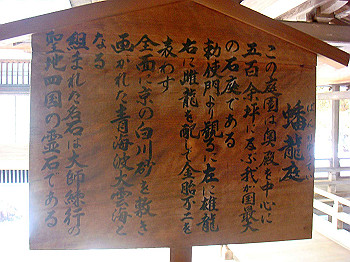 蟠龍庭
この庭園は奥殿を中心に
五百余坪に及ぶ我が国最大
の石庭である
勅使門より観るに左に雄龍
右に雌龍を配して金胎不二を
表わす
全面に京の白川砂を敷き
画がかれた青海波大雲海と
なる
組まれた名石は大師緑行の
聖地四国の霊石である